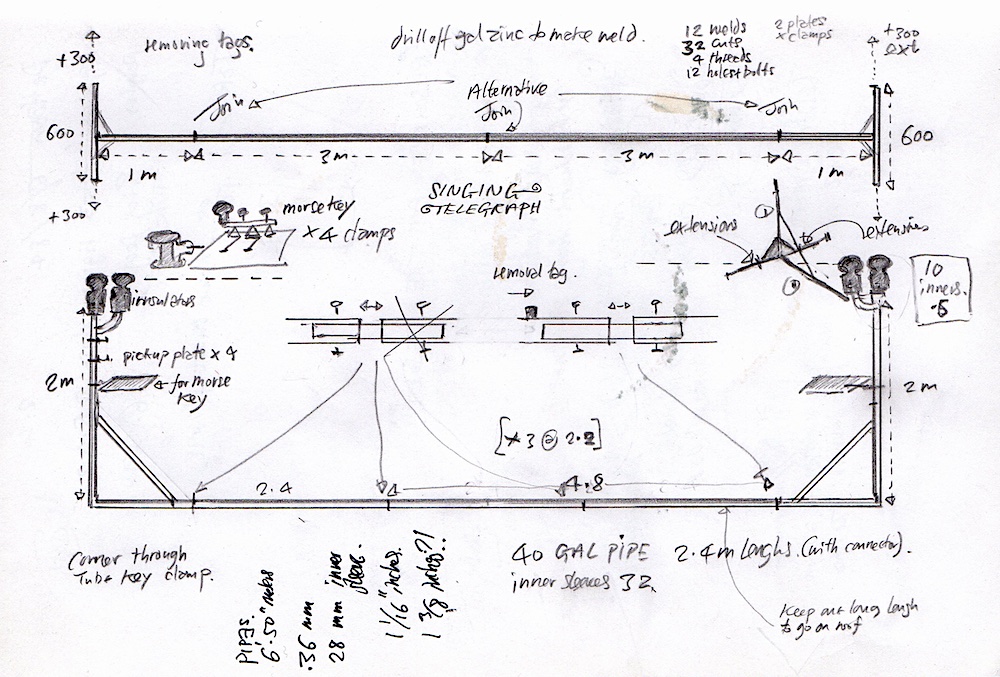 +300
removing tags.
drill off gal zinc to make weld.
12 welds
32 cuts
4 threads
12 holes+bolts
2 plates
x clamps
+300
ext
Join
Alternative
Join
Join
600
600
1m
3m
3m
1m
+300
SINGING
TELEGRAPH
morse key
x 4 clamps
extensions
extensions
1
insulators
removal tag.
10
inners.
.5
pickup plate x 4
2m
for morse
key
2m
[x 3 @ 2.2]
2.4
4.8
Corner through
Tube Key clamp.
40 GAL PIPE 2.4m lengths. (with connector).
inner sleaves 32.
Keep one long length
to go on roof
PIPES.
6.50
.36 mm
28 mm inner
1 1/16" inches.
1 3/8 inches?!